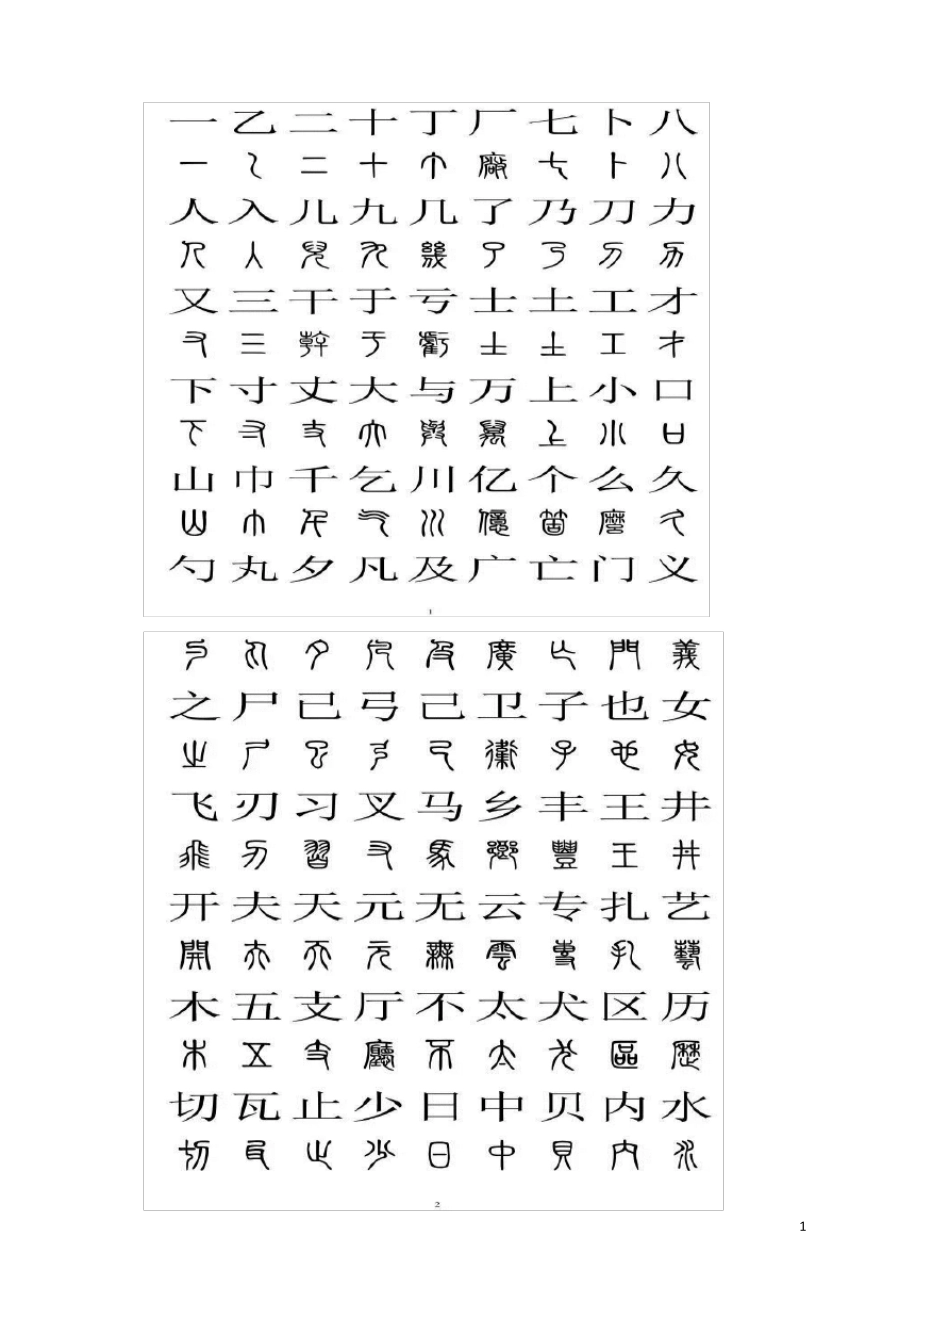 一 乙 二 十 丁 厂 七 卜 八
一 乙 二 十 丁 廠 七 卜 八
人 入 儿 九 几 了 乃 刀 力
人 入 兒 九 幾 了 乃 刀 力
又 三 干 于 亏 士 土 工 才
又 三 幹 于 虧 士 土 工 才
下 寸 丈 大 与 万 上 小 口
下 寸 丈 大 與 萬 上 小 口
山 巾 千 乞 川 亿 个 么 久
山 巾 千 乞 川 億 箇 麼 久
勺 丸 夕 凡 及 广 亡 门 义
1
勺 丸 夕 凡 及 廣 亡 門 義
之 尸 已 弓 己 卫 子 也 女
之 尸 已 弓 己 衛 子 也 女
飞 刃 习 叉 马 乡 丰 王 井
飛 刃 習 叉 馬 鄉 豐 王 井
开 夫 天 元 无 云 专 扎 艺
開 夫 天 元 無 雲 專 扎 藝
木 五 支 厅 不 太 犬 区 历
木 五 支 廳 不 太 犬 區 歷
切 瓦 止 少 日 中 贝 内 水
切 瓦 止 少 日 中 貝 内 水
2
1